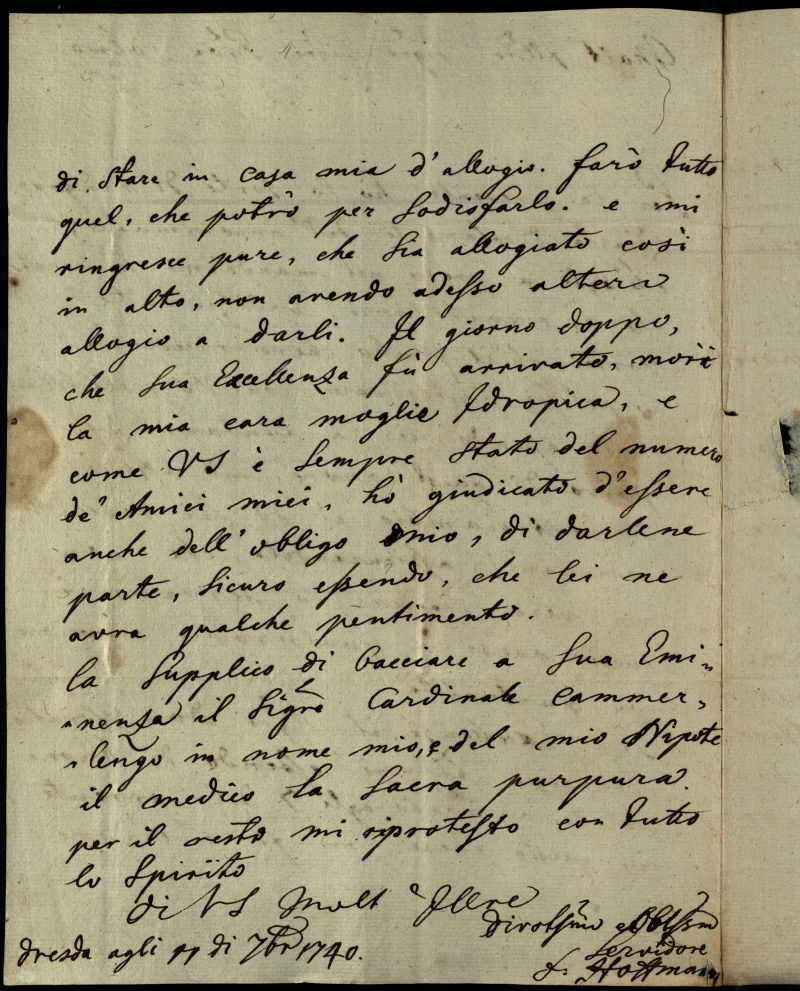 di stare in casa mia d'allogio. farò tutto
quel, che potrò per sodisfarlo. e mi
ringresce pure, che sia allogiato così
in alto, non avendo adesso altero
allogio a darli. Il giorno doppo,
che sua Excellenza fù arrivato, morì
la mia cara moglie Idropica, e
come VS è sempre stato del numero
de' Amici miei, hò giudicato d'essere
anche dell'obligo mio, di darlene
parte, sicuro essendo, che lei ne
avra qualche pentimento.
la supplico di bacciare a sua Emi=
=nenza il Sigre Cardinale Cammer=
=lengo in nome mio, e del mio Nipote
il medico la sacra purpura.
per il resto mi riprotesto con tutto
lo spirito
di VS Molt Illre
divotssmo e Obbssm
servidore
Dresda agli 11 di 7br 1740.
Hoffmann